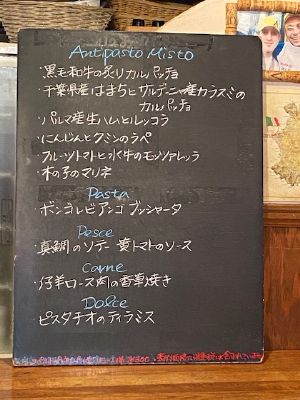 Antipasto Misto
・黒毛和牛の炙りカルパッチョ
・千葉県産はまちとサルデーニャ産カラスミの
カルパッチョ
・パルマ産生ハムとルッコラ
・にんじんとクミンのラペ
・フルーツトマトと水牛のモッツァレッラ
・木の子のマリネ
Pasta
・ボンゴレビアンコ ブッシャータ
Pesce
・真鯛のソテー 黄トマトのソース
Carne
・仔羊ロース肉の香草焼き
Dolce
ピスタチオのティラミス